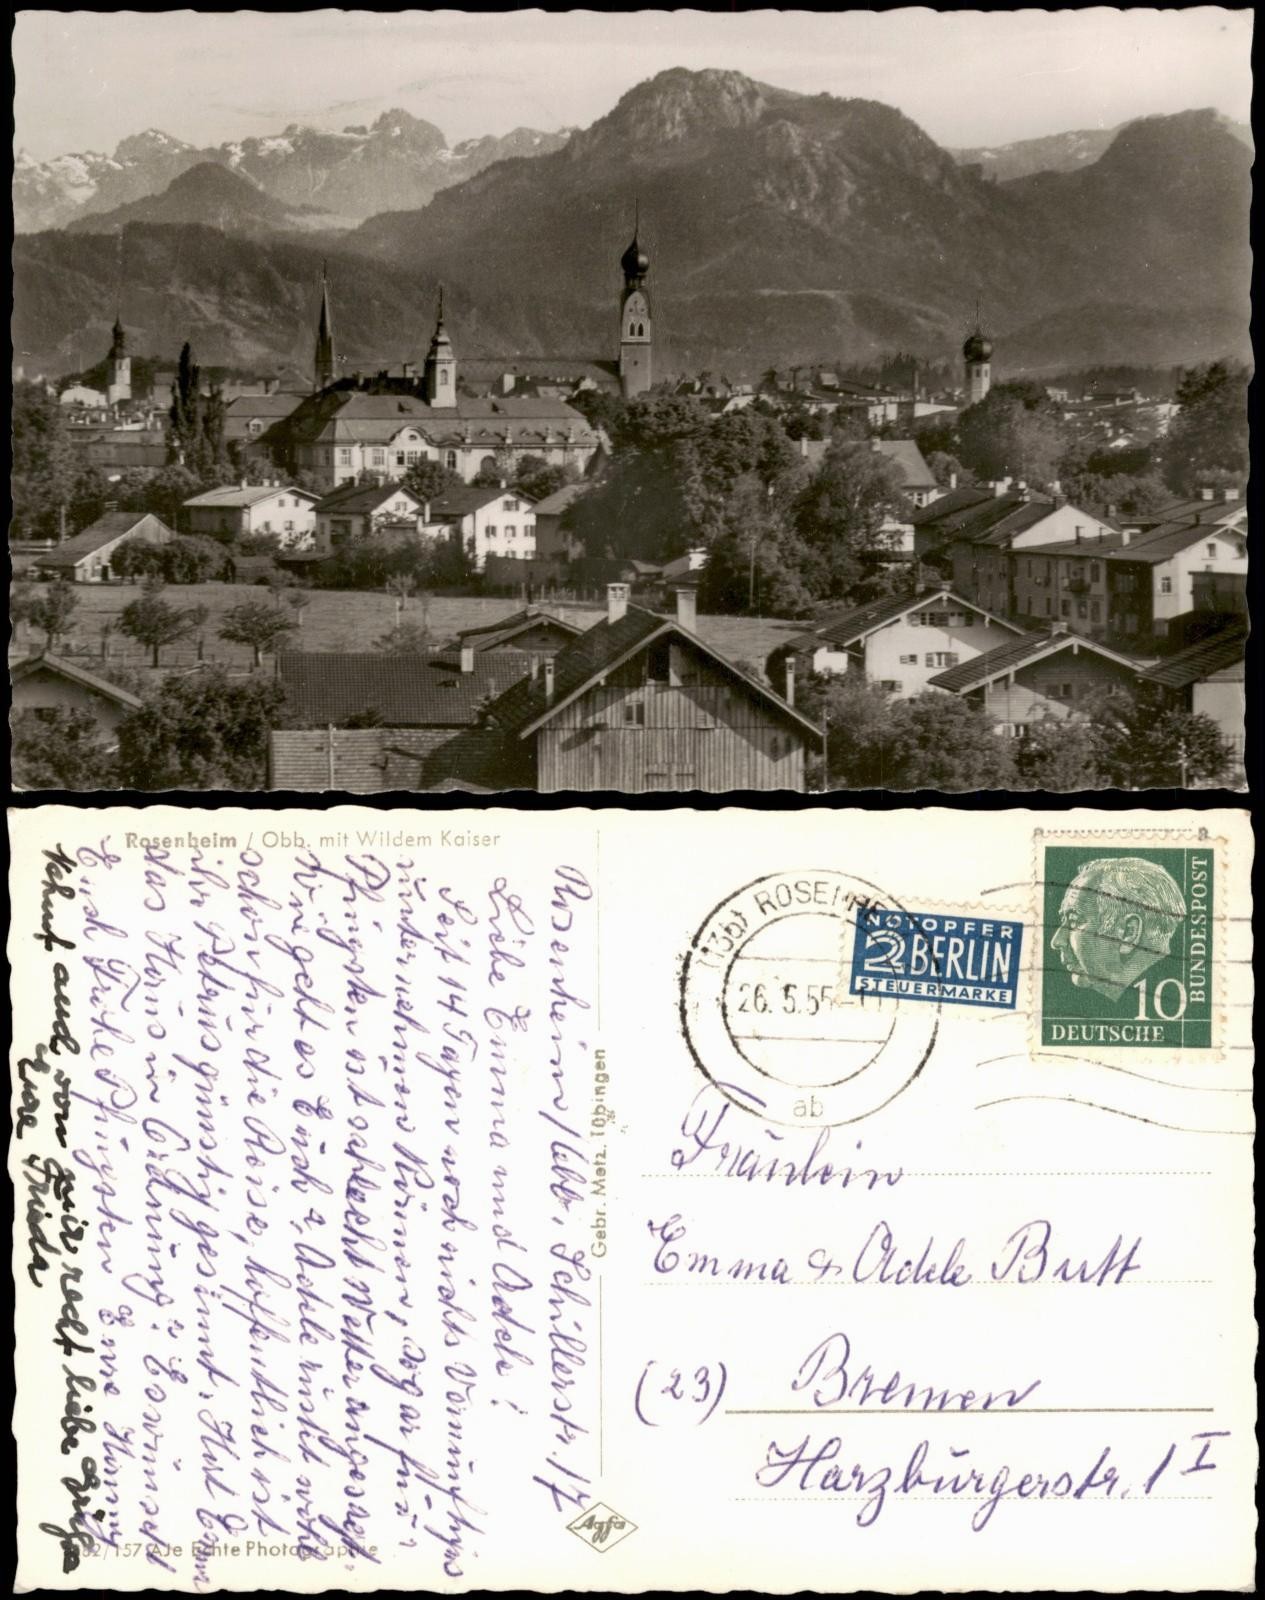 Rosenheim / Obb. mit Wildem Kaiser
Rosenheim/Obb. Schillerstr. 17
Liebe Emma und Adele!
Seit 14 Tagen noch nichts Vernünftiges
unternehmen können, sogar für
Pfingsten ist schlecht Wetter angesagt.
Wie geht es Euch? Adele rüstet wohl
schon für die Reise, hoffentlich ist
ihr Petrus günstig gesinnt. Hat Emma
das Haus in Ordnung? Es wünscht
Euch Frohe Pfingsten Eure Hanny
Nehmt auch von mir recht liebe Grüße
Eure Frieda
52/157 AJe Echte Photographie
Gebr. Metz, Tübingen
Agfa
(13b) ROSENHE
26. 5. 55
ab
NOTOPFER
2 BERLIN
STEUERMARKE
10
DEUTSCHE
BUNDESPOST
Fräulein
Emma & Adele Butt
(23) Bremen
Harzburgerstr. 1 I